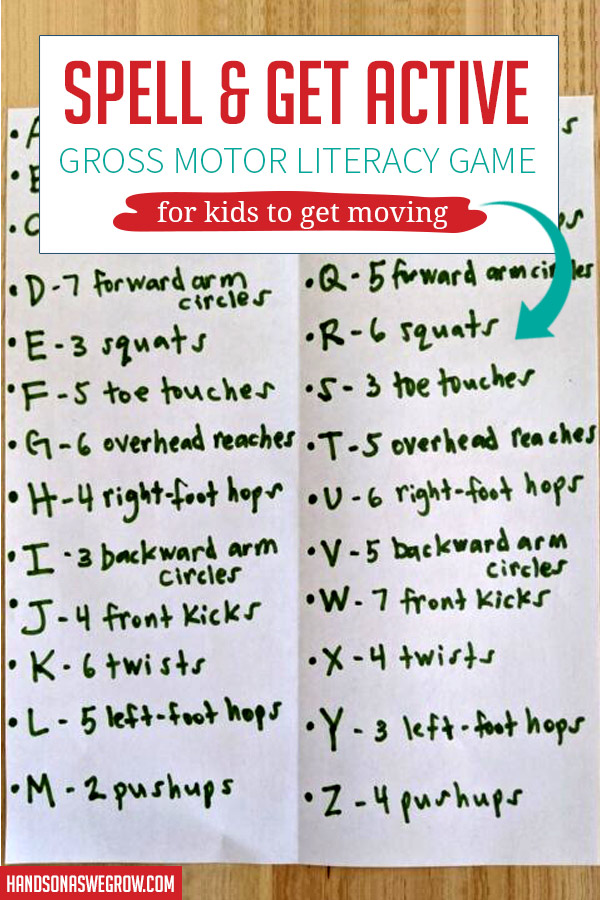 SPELL & GET ACTIVE
GROSS MOTOR LITERACY GAME
for kids to get moving
• D - 7 forward arm
circles
• E - 3 squats
• F - 5 toe touches
• G - 6 overhead reaches
• H - 4 right-foot hops
• I - 3 backward arm
circles
• J - 4 front kicks
• K - 6 twists
• L - 5 left-foot hops
• M - 2 pushups
• Q - 5 forward arm circles
• R - 6 squats
• S - 3 toe touches
• T - 5 overhead reaches
• U - 6 right-foot hops
• V - 5 backward arm
circles
• W - 7 front kicks
• X - 4 twists
• Y - 3 left-foot hops
• Z - 4 pushups
HANDSONASWEGROW.COM